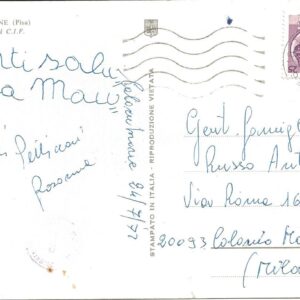 NE (Pisa)
C.I.F.
nti salu
a Mau
Pelliccioni
Rosanna
24/7/77
STAMPATO IN ITALIA - RIPRODUZIONE VIETATA
Gent. famigl
Russo Ant
Via Roma 16
20093 Cologno Mo
(Mila